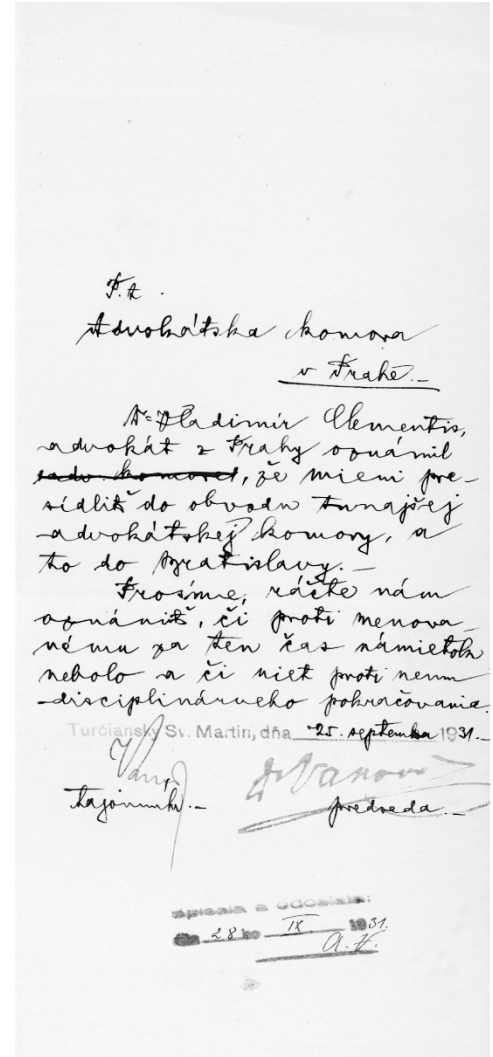 P. t.
Advokátska komora
v Prahe.-
Dr Vladimír Clementis,
advokát z Prahy oznámil
sadv. komore, že mieni pre-
sídliť do obvodu tunajšej
advokátskej komory, a
to do Bratislavy.-
Prosíme, ráčte nám
oznámiť, či proti menova-
nému za ten čas námietok
nebolo a či niet proti nemu
disciplinárneho pokračovania.
Turčiansky Sv. Martin, dňa 25. septembra 1931.
tajomník.- predseda.-
spísala a odoslala:
28 IX. 1931.
A. V.